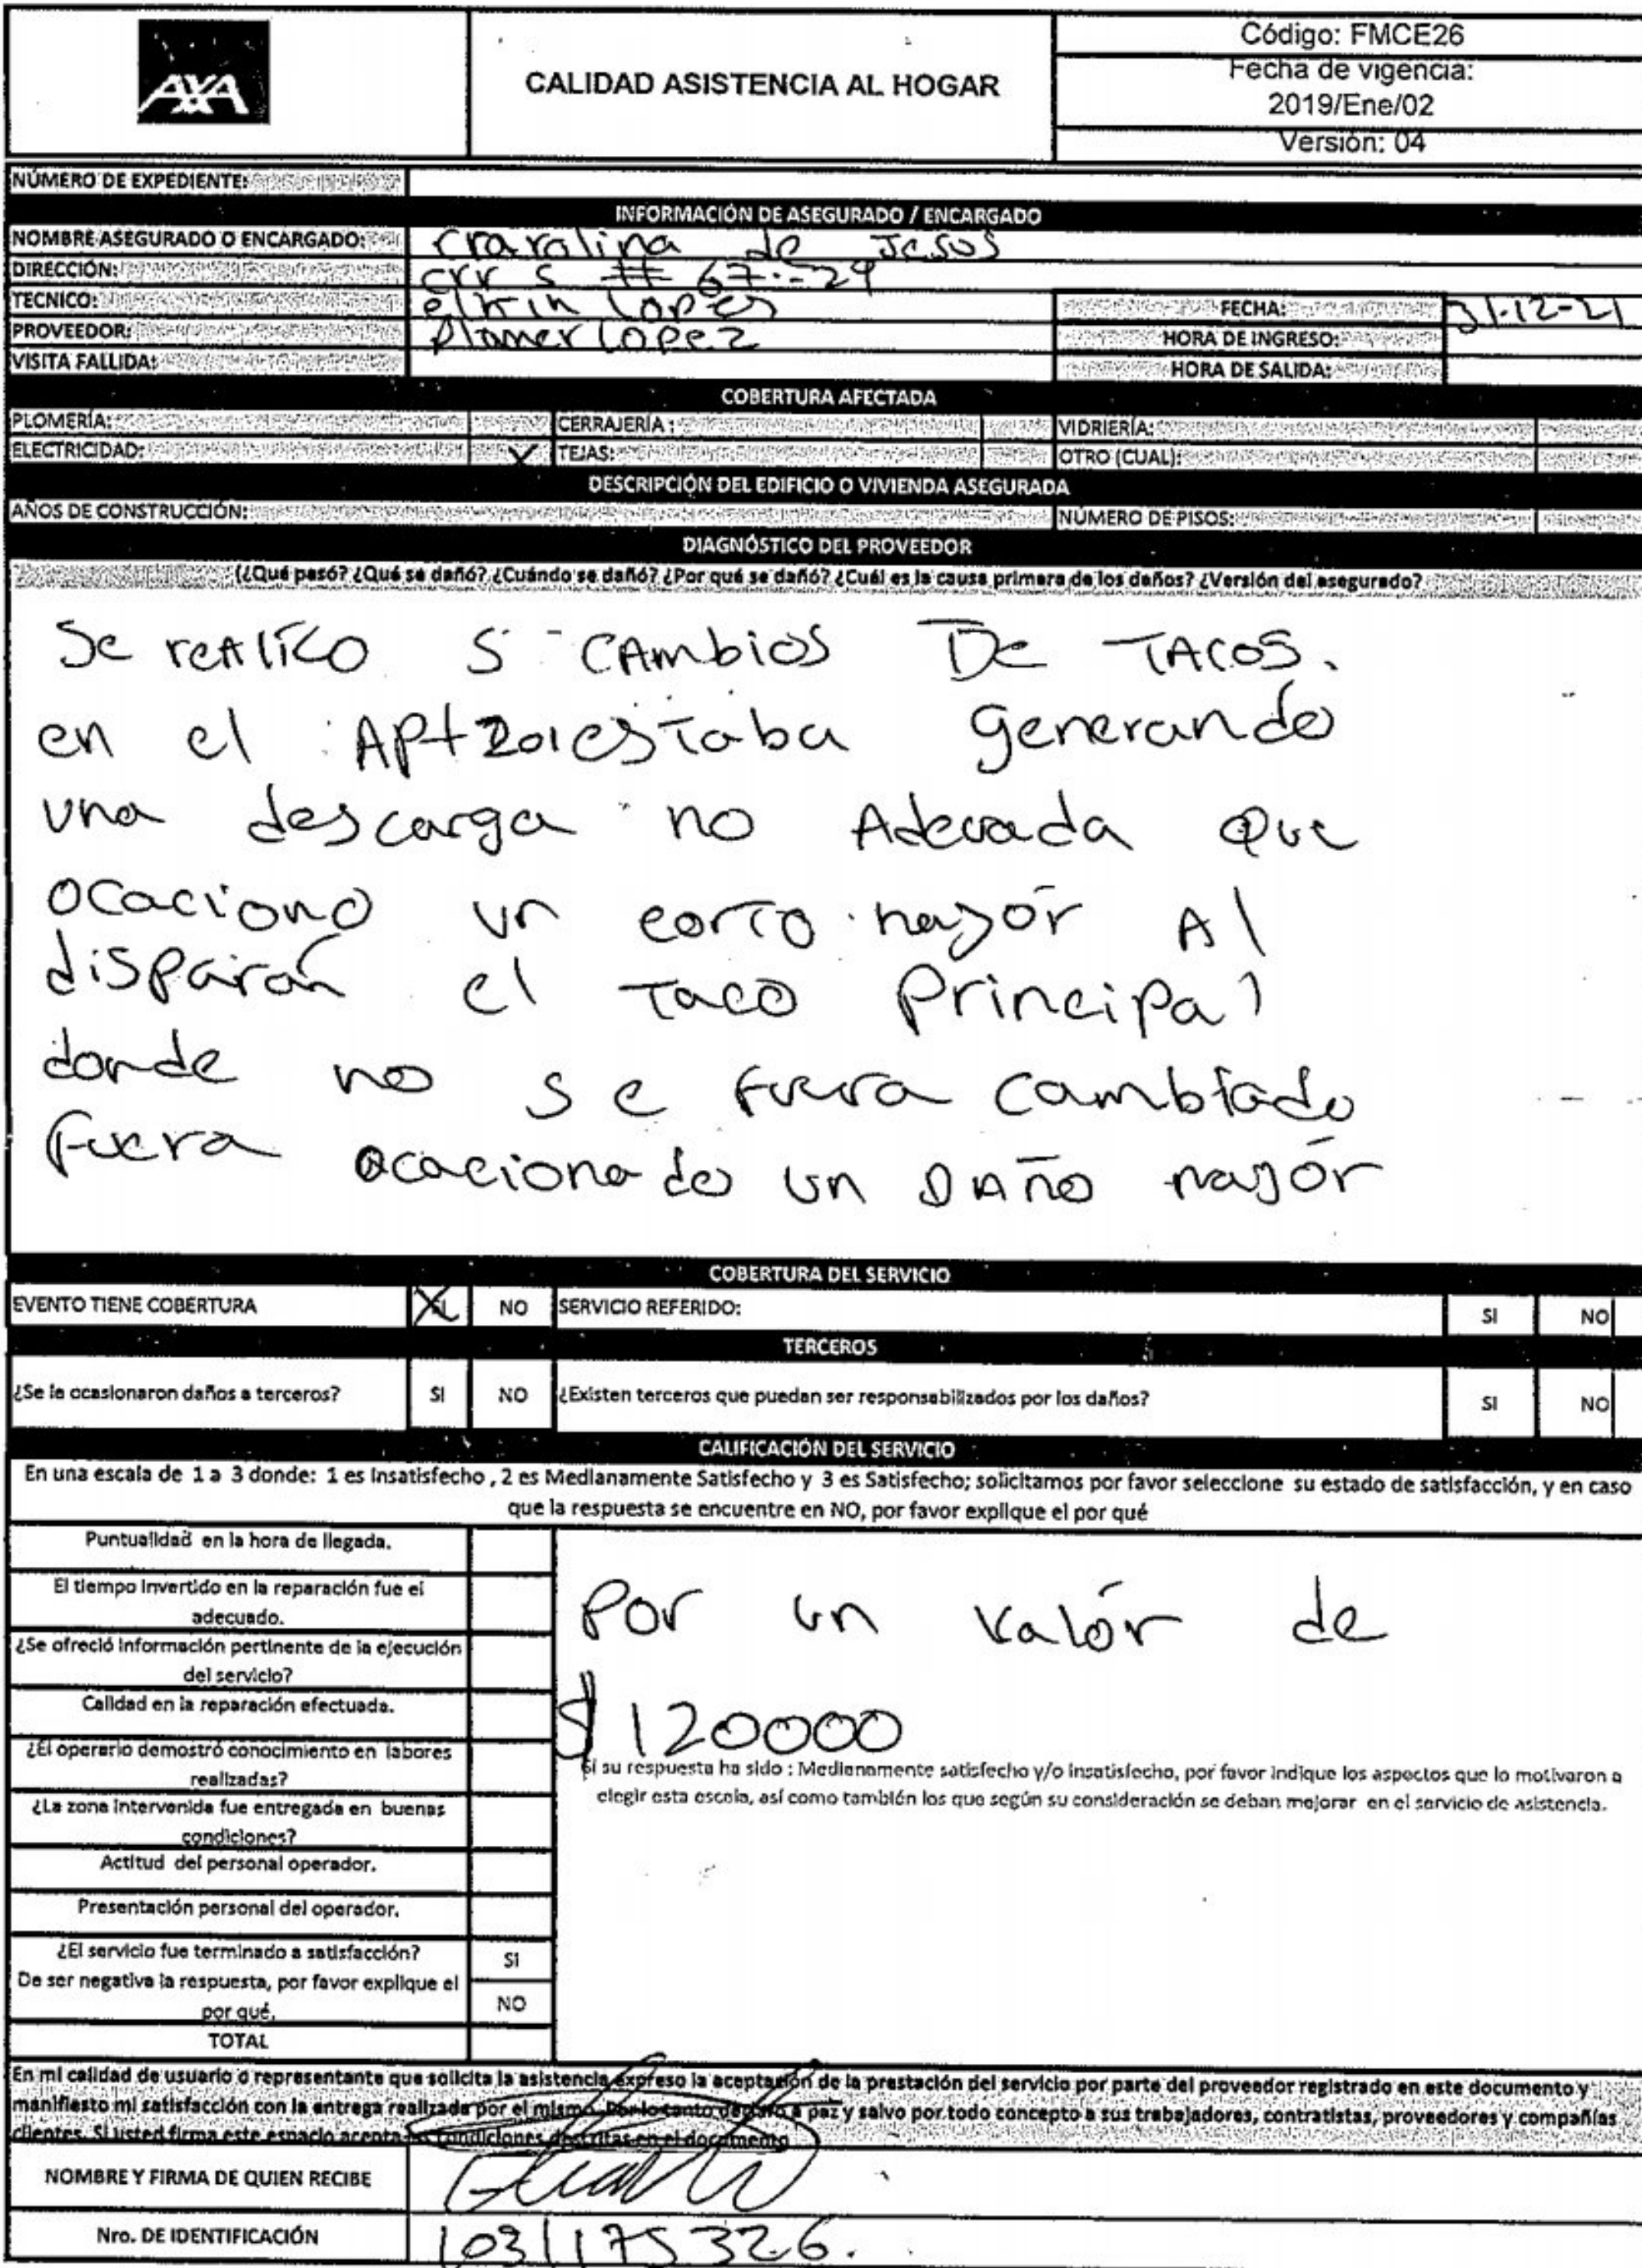 AXA
CALIDAD ASISTENCIA AL HOGAR
Código: FMCE26
Fecha de vigencia:
2019/Ene/02
Versión: 04
NÚMERO DE EXPEDIENTE:
INFORMACIÓN DE ASEGURADO / ENCARGADO
NOMBRE ASEGURADO O ENCARGADO: Craralina de Jesus
DIRECCIÓN: crr 5 # 67-29
TECNICO: elkin lopes
FECHA: 31-12-21
PROVEEDOR: lopez
HORA DE INGRESO:
VISITA FALLIDA:
HORA DE SALIDA:
COBERTURA AFECTADA
PLOMERÍA: CERRAJERÍA: VIDRIERÍA:
ELECTRICIDAD: X TEJAS: OTRO (CUAL):
DESCRIPCIÓN DEL EDIFICIO O VIVIENDA ASEGURADA
AÑOS DE CONSTRUCCIÓN: NÚMERO DE PISOS:
DIAGNÓSTICO DEL PROVEEDOR
(¿Qué pasó? ¿Qué se dañó? ¿Cuándo se dañó? ¿Por qué se dañó? ¿Cuál es la causa primera de los daños? ¿Versión del asegurado?
Se reAlico 5 CAmbios De TACOS.
en el APt 201 estaba generando
una descarga no Adecuada que
ocaciono un corto mayór Al
disparar el Taco principal
donde no se fuera cambiado
fuera ocacionado un DAño mayór
COBERTURA DEL SERVICIO
EVENTO TIENE COBERTURA X NO SERVICIO REFERIDO: SI NO
TERCEROS
¿Se le ocasionaron daños a terceros? SI NO ¿Existen terceros que puedan ser responsabilizados por los daños? SI NO
CALIFICACIÓN DEL SERVICIO
En una escala de 1 a 3 donde: 1 es Insatisfecho, 2 es Medianamente Satisfecho y 3 es Satisfecho; solicitamos por favor seleccione su estado de satisfacción, y en caso
que la respuesta se encuentre en NO, por favor explique el por qué
Puntualidad en la hora de llegada.
El tiempo invertido en la reparación fue el
adecuado.
¿Se ofreció información pertinente de la ejecución
del servicio?
Calidad en la reparación efectuada.
¿El operario demostró conocimiento en labores
realizadas?
¿La zona intervenida fue entregada en buenas
condiciones?
Actitud del personal operador.
Presentación personal del operador.
¿El servicio fue terminado a satisfacción? SI
De ser negativa la respuesta, por favor explique el
por qué. NO
TOTAL
Por un valór de
$120000
Si su respuesta ha sido : Medianamente satisfecho y/o insatisfecho, por favor indique los aspectos que lo motivaron a
elegir esta escala, así como también los que según su consideración se deban mejorar en el servicio de asistencia.
En mi calidad de usuario o representante que solicita la asistencia expreso la aceptación de la prestación del servicio por parte del proveedor registrado en este documento y
manifiesto mi satisfacción con la entrega realizada por el mismo. Por lo tanto declaro a paz y salvo por todo concepto a sus trabajadores, contratistas, proveedores y compañías
clientes. Si usted firma este espacio acepta las condiciones descritas en el documento
NOMBRE Y FIRMA DE QUIEN RECIBE
Nro. DE IDENTIFICACIÓN 1031175326.